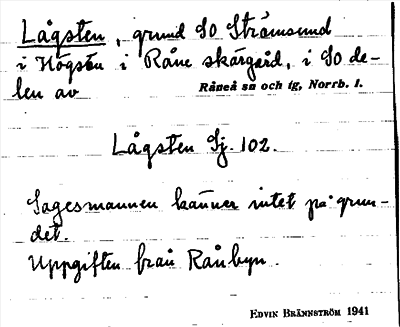 Lågsten, grund SO Strömsund
i Högsön i Råne skärgård, i SO de-
len av Råneå sn och tg, Norrb. l.
Lågsten Sj. 102.
Sagesmannen känner intet på grun-
det.
Uppgiften från Rånbyn.
EDVIN BRÄNNSTRÖM 1941